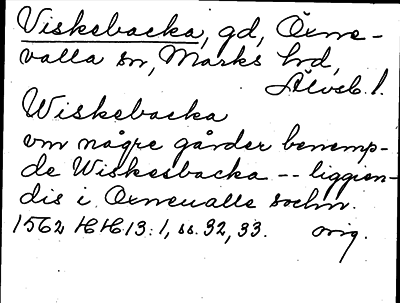 Viskebacka, gd, Örne-
valla sn, Marks hrd,
Älvsb. l.
Wiskebacka
vm någre gårder benemp-
de Wiskesbacka -- liggien-
dis i Örneualle sochn.
1562 HH 13:1, ss. 32, 33. orig.